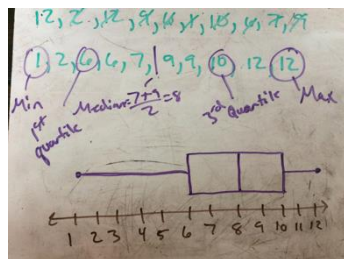 12, 2, 12, 9, 6, 1, 10, 6, 7, 9
1, 2, 6, 6, 7, | 9, 9, 10, 12, 12
Min 1st quartile Median = 7+9/2 = 8 3rd Quartile Max
1 2 3 4 5 6 7 8 9 10 11 12